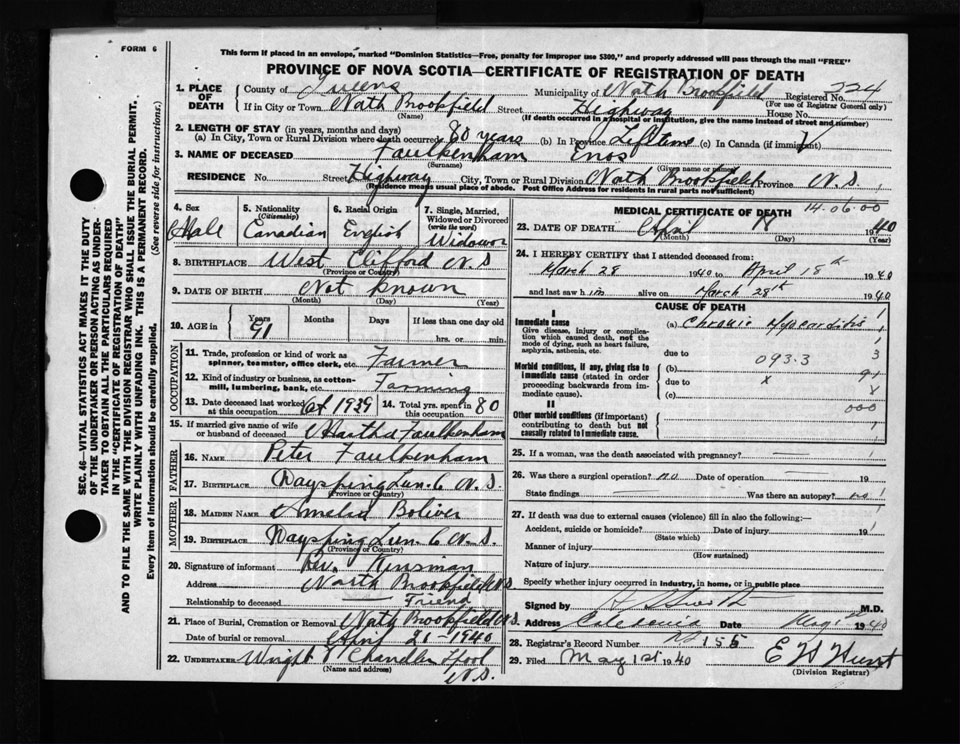 FORM 6
This form if placed in an envelope, marked "Dominion Statistics—Free, penalty for improper use $300," and properly addressed will pass through the mail "FREE"
PROVINCE OF NOVA SCOTIA—CERTIFICATE OF REGISTRATION OF DEATH
1. PLACE OF DEATH County of Queens Municipality of North Brookfield Registered No. 224
(For use of Registrar General only)
If in City or Town North Brookfield Street Highway House No.
(Name) (If death occurred in a hospital or institution, give the name instead of street and number)
2. LENGTH OF STAY (in years, months and days)
(a) In City, Town or Rural Division where death occurred 80 years (b) In Province Lifetime (c) In Canada (if immigrant)
3. NAME OF DECEASED Faulkenham Enos
(Surname) (Given name or names)
RESIDENCE No. Street Highway City, Town or Rural Division North Brookfield Province N.S.
(Residence means usual place of abode. Post Office Address for residents in rural parts not sufficient)
4. Sex Male
5. Nationality (Citizenship) Canadian
6. Racial Origin English
7. Single, Married, Widowed or Divorced (write the word) Widower
8. BIRTHPLACE West Clifford N S
(Province or Country)
9. DATE OF BIRTH Not known
(Month) (Day) (Year)
10. AGE in Years 91 Months Days If less than one day old
hrs. or min.
OCCUPATION
11. Trade, profession or kind of work as spinner, teamster, office clerk, etc. Farmer
12. Kind of industry or business, as cotton-mill, lumbering, bank, etc. Farming
13. Date deceased last worked at this occupation Oct 1939 14. Total yrs. spent in this occupation 80
15. If married give name of wife or husband of deceased Martha Faulkenham
FATHER
16. NAME Peter Faulkenham
17. BIRTHPLACE Dayspring Lun. C N.S.
(Province or Country)
MOTHER
18. MAIDEN NAME Amelia Boliver
19. BIRTHPLACE Dayspring Lun. C N.S.
(Province or Country)
20. Signature of informant Rev. Kinsman
Address North Brookfield N.S
Relationship to deceased Friend
21. Place of Burial, Cremation or Removal North Brookfield N.S.
Date of burial or removal April 21-1940
22. UNDERTAKER Wright Chandler
(Name and address) N.S.
MEDICAL CERTIFICATE OF DEATH
14.06.00
23. DATE OF DEATH April 18 1940
(Month) (Day) (Year)
24. I HEREBY CERTIFY that I attended deceased from:
March 28 1940 to April 18th 1940
and last saw him alive on March 28th 1940
CAUSE OF DEATH
I
Immediate cause
Give disease, injury or complication which caused death, not the mode of dying, such as heart failure, asphyxia, asthenia, etc.
(a) Chronic Myocarditis
due to
Morbid conditions, if any, giving rise to immediate cause (stated in order proceeding backwards from immediate cause).
(b) 093.3
due to x
(c)
1
3
91
8
000
II
Other morbid conditions (if important) contributing to death but not causally related to immediate cause.
25. If a woman, was the death associated with pregnancy?
26. Was there a surgical operation? no. Date of operation 19
State findings Was there an autopsy? no
27. If death was due to external causes (violence) fill in also the following:—
Accident, suicide or homicide? Date of injury 19
(State which)
Manner of injury
(How sustained)
Nature of injury
Specify whether injury occurred in industry, in home, or in public place
Signed by M.D.
Address Caledonia Date May 1st 1940
28. Registrar's Record Number No 155
29. Filed May 1st 1940 E W Hunt
(Division Registrar)
SEC. 46—VITAL STATISTICS ACT MAKES IT THE DUTY
OF THE UNDERTAKER OR PERSON ACTING AS UNDER-
TAKER TO OBTAIN ALL THE PARTICULARS REQUIRED
IN THE "CERTIFICATE OF REGISTRATION OF DEATH"
AND TO FILE THE SAME WITH THE DIVISION REGISTRAR WHO SHALL ISSUE THE BURIAL PERMIT.
WRITE PLAINLY WITH UNFADING INK. THIS IS A PERMANENT RECORD.
Every item of information should be carefully supplied. (See reverse side for instructions.)